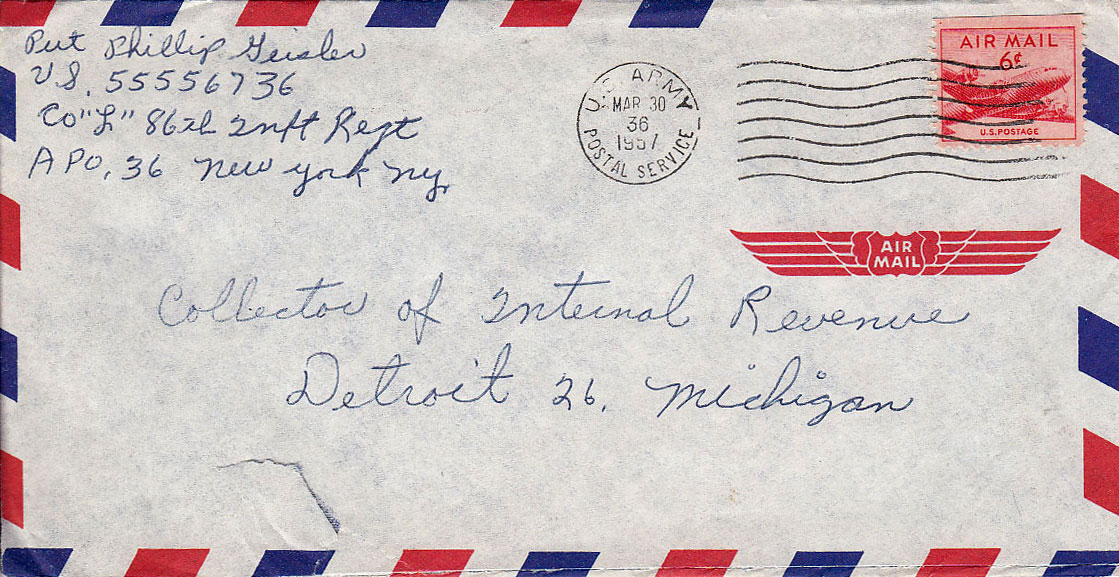 Pvt Phillip Geisler
US. 55556736
Co "L" 86th Inft Regt
APO. 36 New York NY.
U.S. ARMY
MAR 30
36
1957
POSTAL SERVICE
AIR MAIL
6¢
U.S. POSTAGE
AIR
MAIL
Collector of Internal Revenue
Detroit 26. Michigan